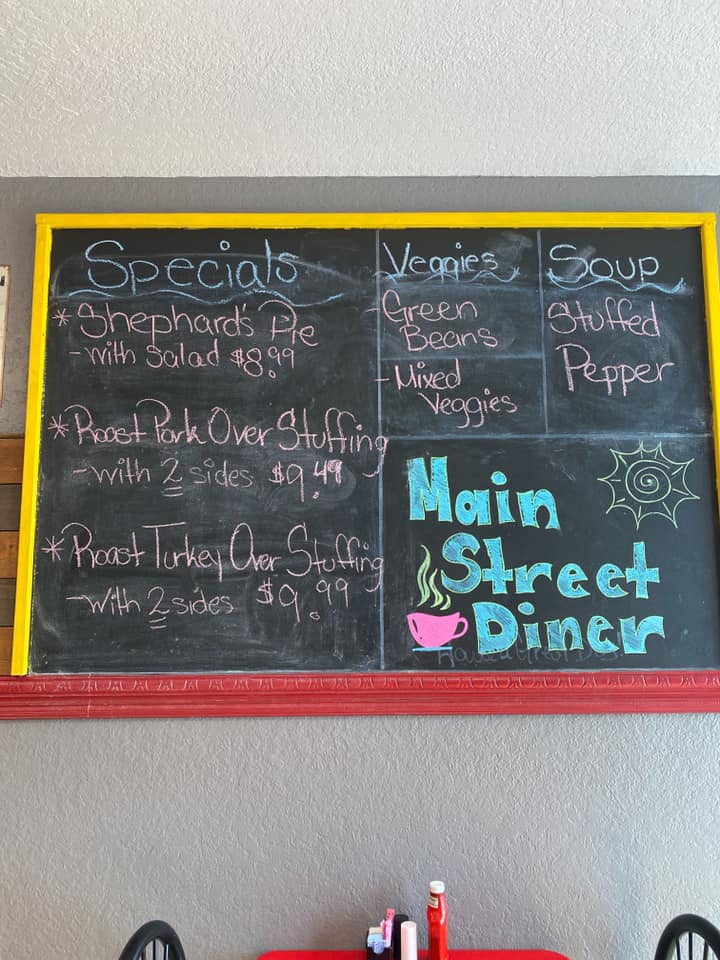 Specials
* Shephard's Pie
- with salad $8.99
* Roast Pork Over Stuffing
- with 2 sides $9.49
* Roast Turkey Over Stuffing
- with 2 sides $9.99
Veggies
- Green
Beans
- Mixed
Veggies
Soup
Stuffed
Pepper
Main
Street
Diner